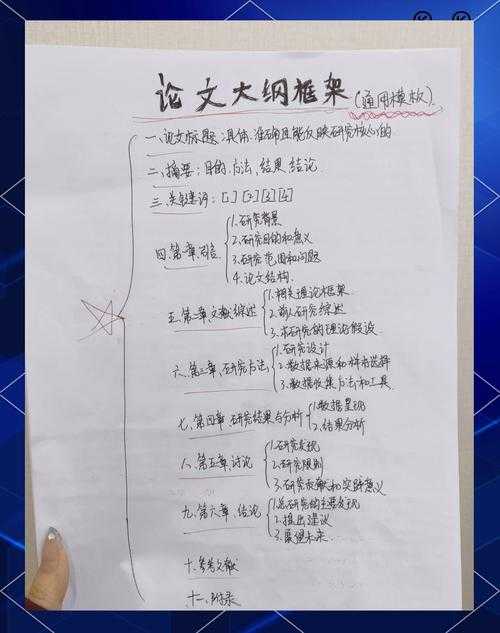 论文大纲框架(通用模板)
一、论文标题:具体、准确且能反映研究核心的
二、摘要:目的、方法、结果、结论
三、关键词:[1][2][3][4]
四、第一章、引言
1.研究背景
2.研究目的和意义
3.研究范围和问题
4.论文结构
五、第二章、文献综述
1.相关理论框架
2.前人研究综述
3.本研究的理论假设
六、第三章、研究方法
1.研究设计
2.数据来源和样本选择
3.数据收集方法和工具
七、第四章 研究结果与分析
1.数据呈现
2.结果分析
八、第五章、讨论
1.研究发现
2.研究限制
3.研究贡献和实践意义
九、第六章、结论
1.总研究的主要发现
2.提出建议
3.展望未来
十、参考文献
十一、附录